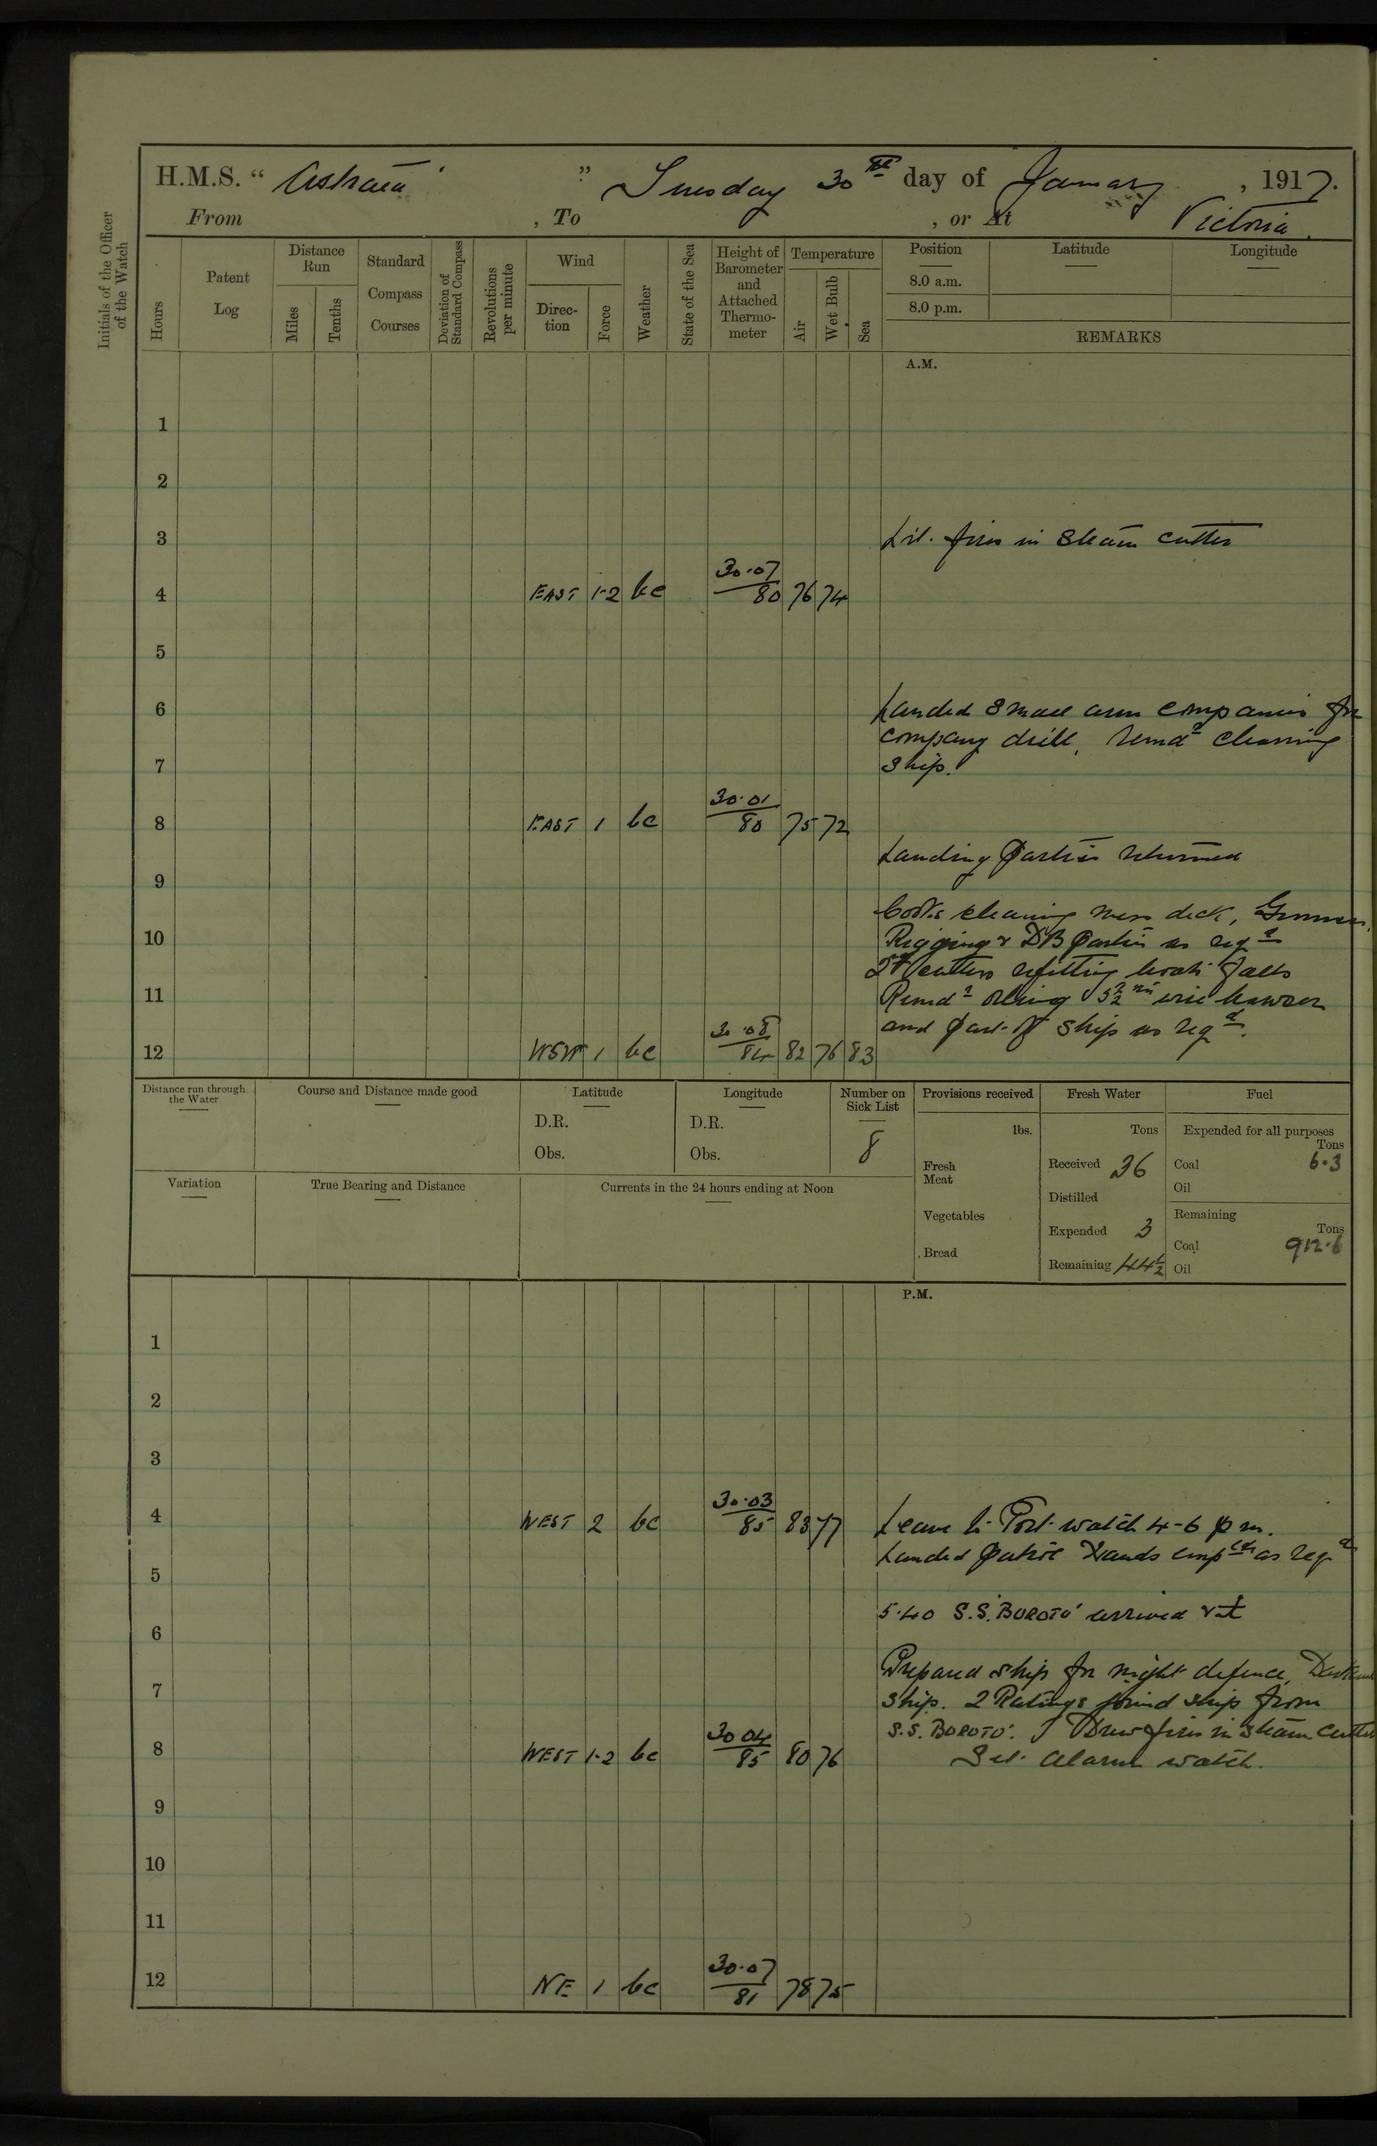 H.M.S. " Astraea " Tuesday 30th day of January, 1917.
From , To , or At Victoria.
Initials of the Officer of the Watch
Hours
Patent Log
Distance Run
Miles
Tenths
Standard Compass Courses
Deviation of Standard Compass
Revolutions per minute
Wind
Direction
Force
Weather
State of the Sea
Height of Barometer and Attached Thermometer
Temperature
Air
Wet Bulb
Sea
Position
Latitude
Longitude
8.0 a.m.
8.0 p.m.
REMARKS
A.M.
1
2
3 Lit fires in steam cutter
4 EAST 1-2 bc 30.07 80 76 74
5
6 Landed small arm companies for
company drill, Remdr cleaning
7 ship.
8 EAST 1 bc 30.01 80 75 72
Landing parties returned
9
Cooks cleaning mess deck, Gunners,
10 Rigging & DB parties as reqd
cutters refitting boats falls
11 Remdr oiling wire hawser
and part of ship as reqd.
12 WSW 1 bc 30.08 84 82 76 83
Distance run through the Water
Course and Distance made good
Latitude
D.R.
Obs.
Longitude
D.R.
Obs.
Number on Sick List
8
Variation
True Bearing and Distance
Currents in the 24 hours ending at Noon
Provisions received
lbs.
Fresh Meat
Vegetables
Bread
Fresh Water
Tons
Received 36
Distilled
Expended 3
Remaining 44½
Fuel
Expended for all purposes
Tons
Coal 6.3
Oil
Remaining
Tons
Coal 912.6
Oil
P.M.
1
2
3
4 WEST 2 bc 30.03 85 83 77 Leave to Port watch 4-6 pm.
Landed patrol Hands empld as reqd
5
5.40 S.S. 'BOROTO' arrived
6
Prepared ship for night defence, Darkened
7 ship. 2 Ratings joined ship from
S.S. BOROTO'. Drew fires in steam cutter
8 WEST 1-2 bc 30.04 85 80 76 Set alarm watch.
9
10
11
12 NE 1 bc 30.07 81 78 75